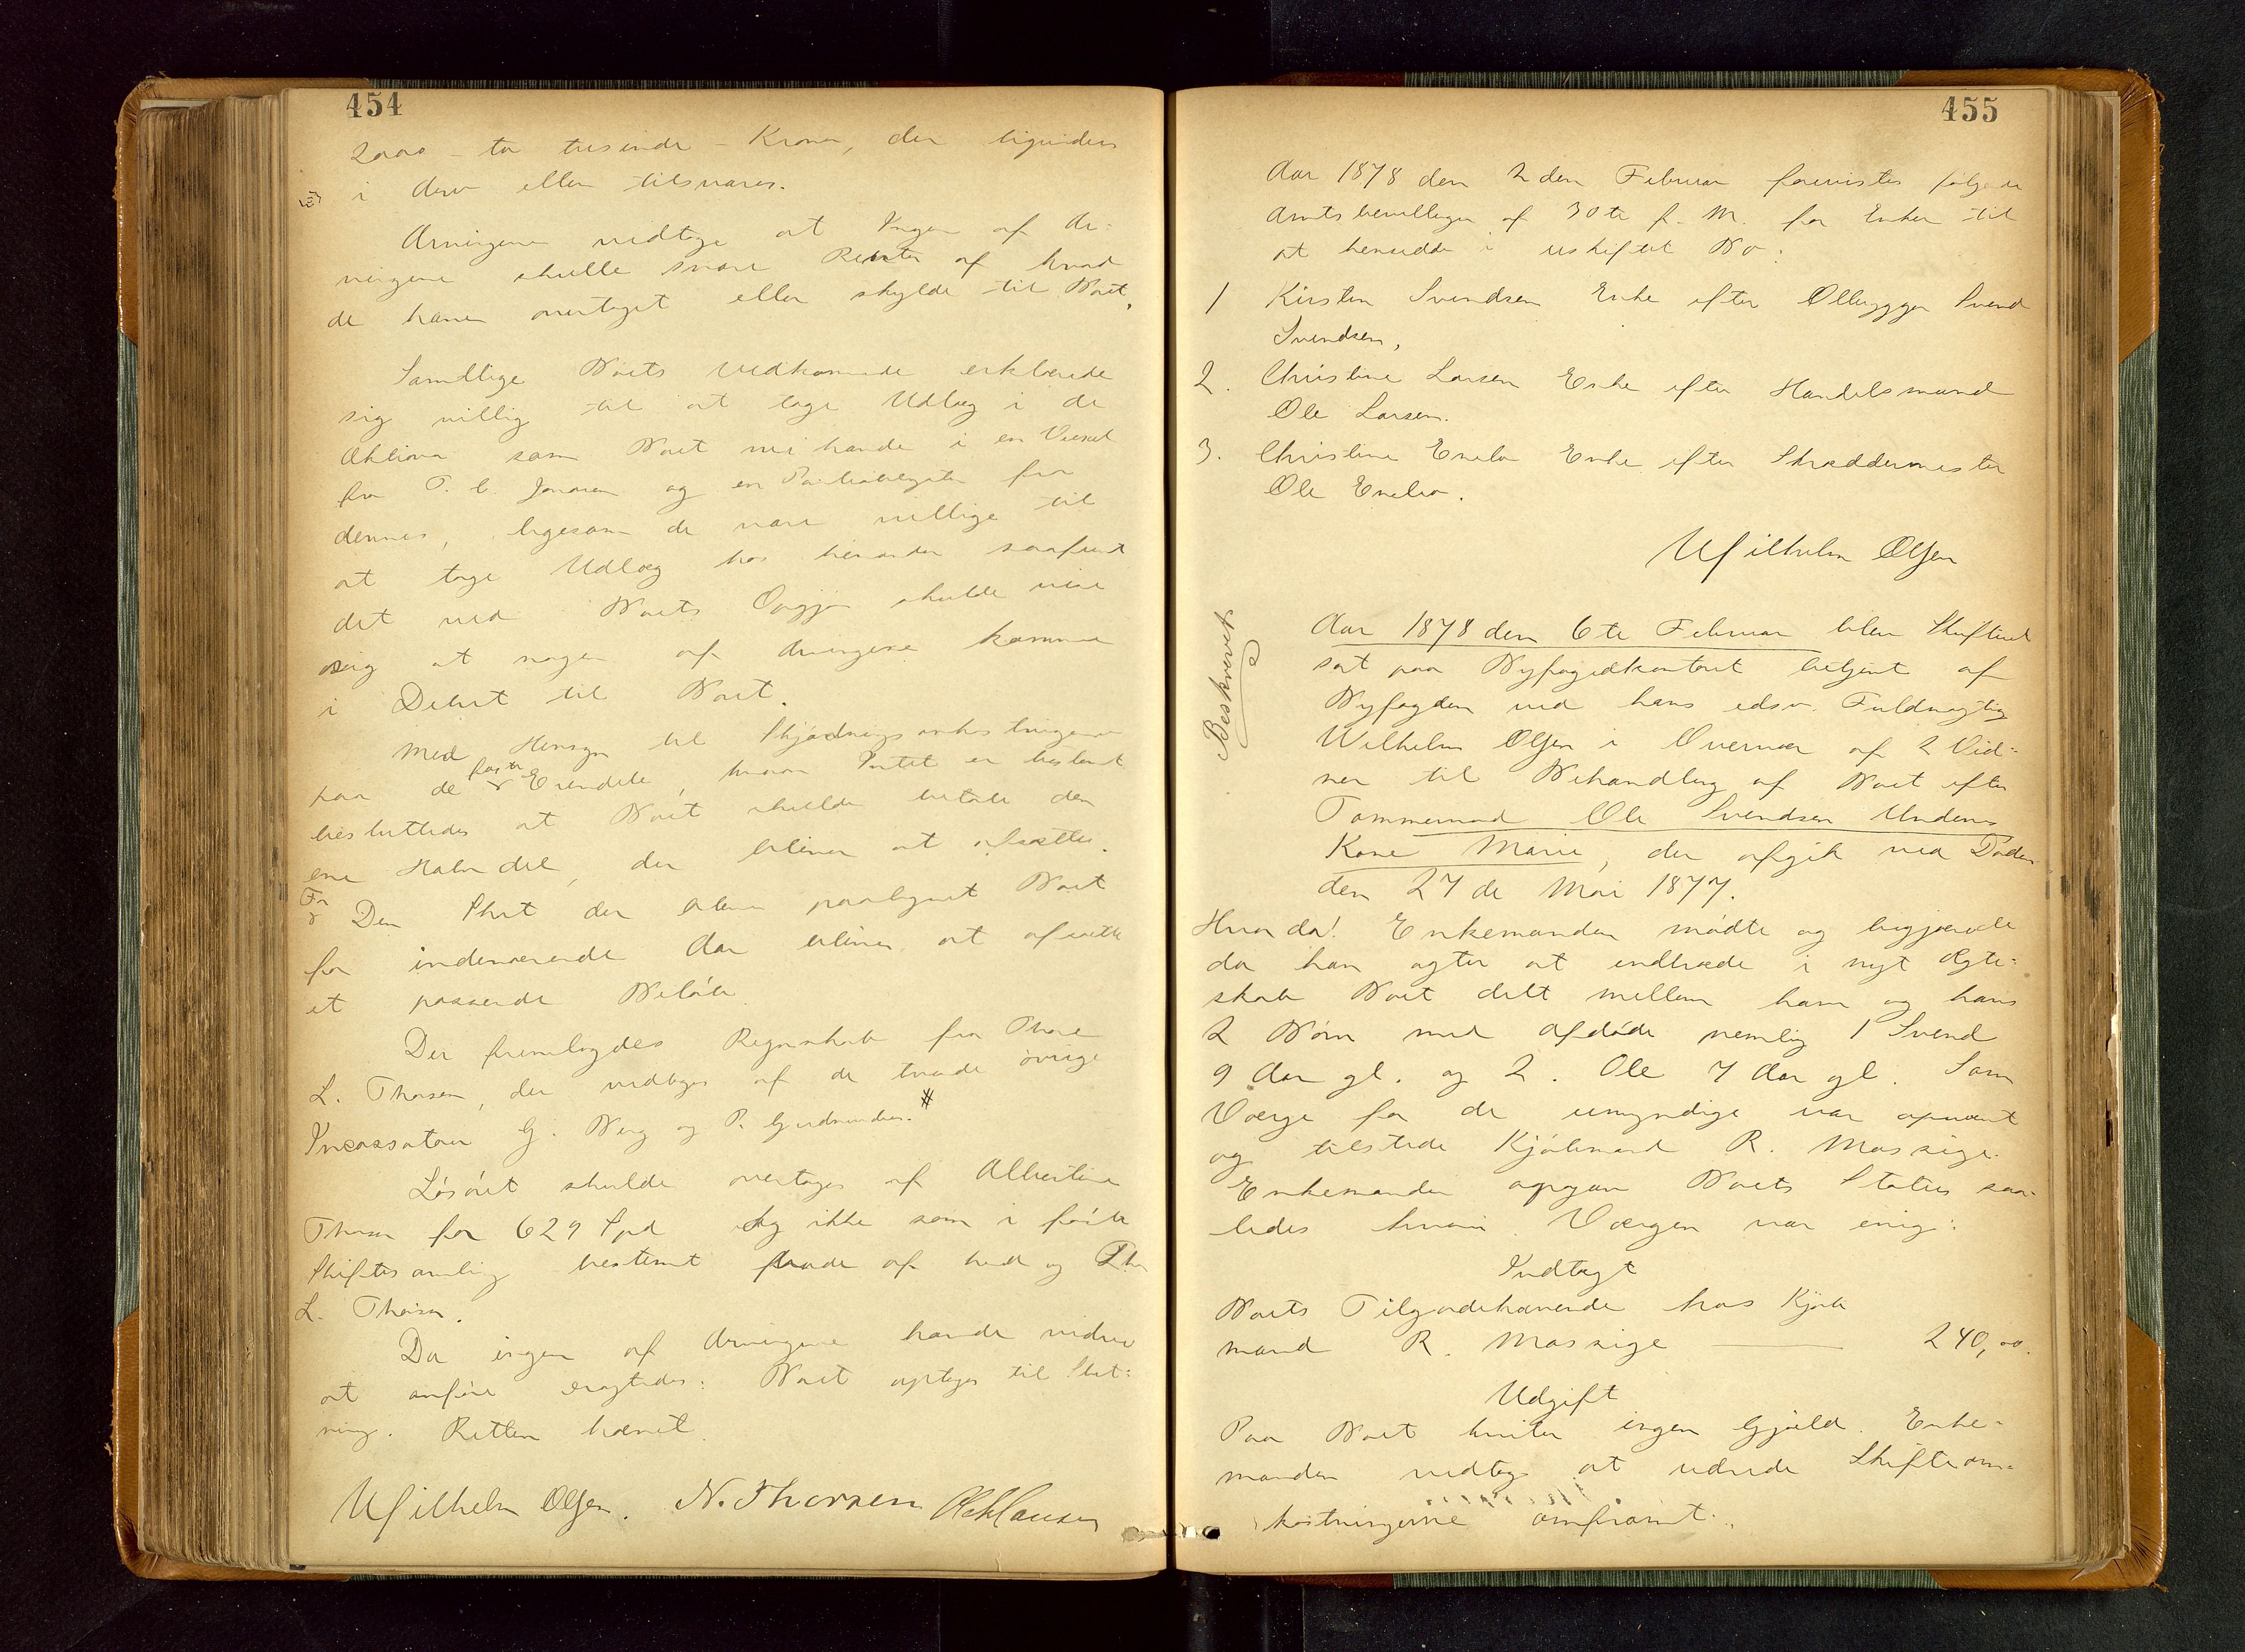 454
2000 - to tusinde - Kroner, der ligeindeis
i derv eller tilsvares.
Arvingerne vedtoge at Ingen af Ar-
vingerne skulle svare Renter af hvad
de haver overtaget eller skylde til Boet.
Samtlige Boets Vedkommende erklærede
sig villig til at tage Udlæg i de
Aktiva som Boet nu havde i en Vexel
fra T. C. Jonasen og en fra
dennes, ligesom de vare villige til
at tage Udlæg hos hinanden saafremt
det ved Boets Opgjør skulde vise
sig at nogen af Arvingerne komme
i Debet til Boet.
Med Hensyn til Skjødningsomkostningerne
paa de faste Eiendele, hvorom Intet er bestemt
besluttedes at Boet skulde betale den
ene Halvdel, der bliver at afsættes.
For Den Skat der bliver paalignet Boet
for indeværende Aar bliver at afsætte
et passende Beløb.
Der fremlagdes Regnskab fra Thore
L. Thorsen, der vedtoges af de tvende øvrige
Incassatorer G. Berg og P. Gudmundsen. #
Løsøret skulde overtages af Albertine
Thorsen for 629 Spd og ikke som i første
Skiftesamling bestemt baade af hende og Thore
L. Thorsen.
Da ingen af Arvingerne havde videre
at anføre eragtedes: Boet optages til Slut-
ning. Retten hævet.
Wilhelm Olsen. N. Thorsen

455
Aar 1878 den 2den Februar forevistes følgende
Amtsbevillinger af 30te f. M. for Enker til
at hensidde i uskiftet Bo:
1 Kirsten Svendsen Enke efter Ølbrygger Svend
Svendsen,
2. Christine Larsen Enke efter Handelsmand
Ole Larsen.
3. Christine Enebo Enke efter Skræddermester
Ole Enebo.
Wilhelm Olsen
Beskrevet
Aar 1878 den 6te Februar blev Skifteret
sat paa Byfogedkontoret betjent af
Byfogden ved hans edsv. Fuldmægtig
Wilhelm Olsen i Overvær af 2 Vid-
ner til Behandling af Boet efter
Tømmermand Ole Svendsen Undenes
Kone Marie, der afgik ved Døden
den 27de Mai 1877.
Hvorda! Enkemanden mødte og begjærede
da han agter at indtræde i nyt Ægte-
skab Boet delt mellem ham og hans
2 Børn med afdøde nemlig 1 Svend
9 Aar gl. og 2. Ole 7 Aar gl. Som
Værge for de umyndige var opnævnt
og tilstede Kjøbmand R. Massige.
Enkemanden opgav Boets Status saa-
ledes hvori Værgen var enig:
Indtægt
Boets Tilgodehavende hos Kjøb
mand R. Massige — 240,00.
Udgift
Paa Boet hviler ingen Gjæld. Enke-
manden vedtog at udrede Skifteom-
kostningerne omfrømt.